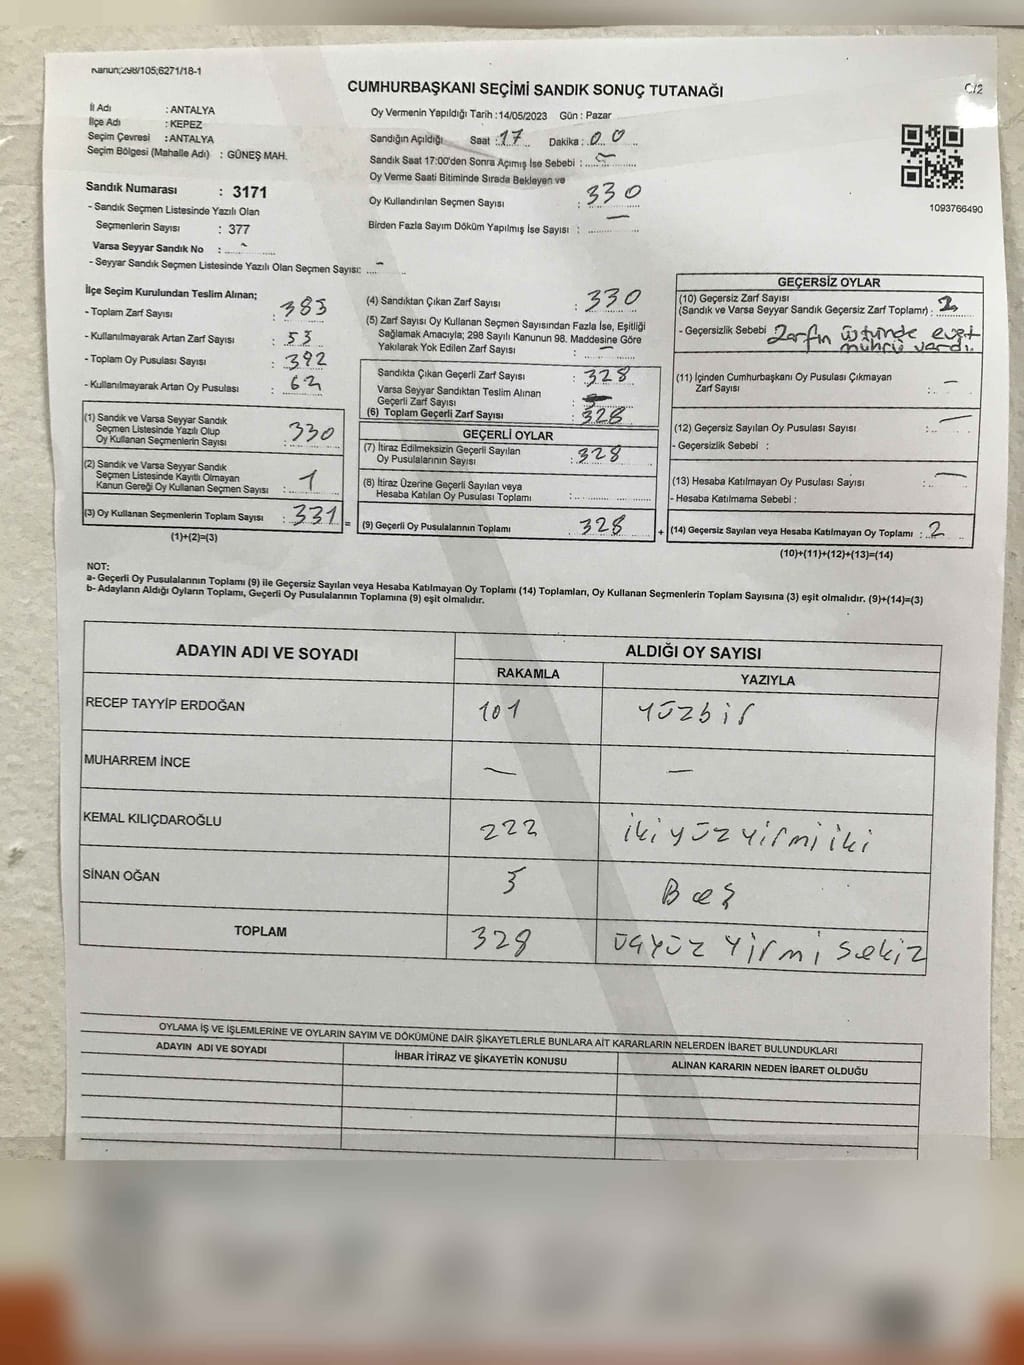 Kanun;298/105;6271/18-1
CUMHURBAŞKANI SEÇİMİ SANDIK SONUÇ TUTANAĞI
C/2
İl Adı : ANTALYA
İlçe Adı : KEPEZ
Seçim Çevresi : ANTALYA
Seçim Bölgesi (Mahalle Adı) : GÜNEŞ MAH.
Sandık Numarası : 3171
- Sandık Seçmen Listesinde Yazılı Olan
Seçmenlerin Sayısı : 377
Varsa Seyyar Sandık No :
- Seyyar Sandık Seçmen Listesinde Yazılı Olan Seçmen Sayısı:
Oy Vermenin Yapıldığı Tarih :14/05/2023 Gün : Pazar
Sandığın Açıldığı Saat : 17 Dakika : 00
Sandık Saat 17:00'den Sonra Açımış İse Sebebi :
Oy Verme Saati Bitiminde Sırada Bekleyen ve
Oy Kullandırılan Seçmen Sayısı : 330
Birden Fazla Sayım Döküm Yapılmış İse Sayısı : —
1093766490
İlçe Seçim Kurulundan Teslim Alınan;
- Toplam Zarf Sayısı : 383
- Kullanılmayarak Artan Zarf Sayısı : 53
- Toplam Oy Pusulası Sayısı : 392
- Kullanılmayarak Artan Oy Pusulası : 62
(1) Sandık ve Varsa Seyyar Sandık
Seçmen Listesinde Yazılı Olup
Oy Kullanan Seçmenlerin Sayısı : 330
(2) Sandık ve Varsa Seyyar Sandık
Seçmen Listesinde Kayıtlı Olmayan
Kanun Gereği Oy Kullanan Seçmen Sayısı : 1
(3) Oy Kullanan Seçmenlerin Toplam Sayısı : 331 =
(1)+(2)=(3)
(4) Sandıktan Çıkan Zarf Sayısı : 330
(5) Zarf Sayısı Oy Kullanan Seçmen Sayısından Fazla İse, Eşitliği
Sağlamak Amacıyla; 298 Sayılı Kanunun 98. Maddesine Göre
Yakılarak Yok Edilen Zarf Sayısı : —
Sandıkta Çıkan Geçerli Zarf Sayısı : 328
Varsa Seyyar Sandıktan Teslim Alınan
Geçerli Zarf Sayısı :
(6) Toplam Geçerli Zarf Sayısı : 328
GEÇERLİ OYLAR
(7) İtiraz Edilmeksizin Geçerli Sayılan
Oy Pusulalarının Sayısı : 328
(8) İtiraz Üzerine Geçerli Sayılan veya
Hesaba Katılan Oy Pusulası Toplamı :
(9) Geçerli Oy Pusulalarının Toplamı 328 +
GEÇERSİZ OYLAR
(10) Geçersiz Zarf Sayısı
(Sandık ve Varsa Seyyar Sandık Geçersiz Zarf Toplamı) : 2
- Geçersizlik Sebebi Zarfın üstünde evet
mührü vardı.
(11) İçinden Cumhurbaşkanı Oy Pusulası Çıkmayan
Zarf Sayısı : —
(12) Geçersiz Sayılan Oy Pusulası Sayısı : —
- Geçersizlik Sebebi :
(13) Hesaba Katılmayan Oy Pusulası Sayısı : —
- Hesaba Katılmama Sebebi :
(14) Geçersiz Sayılan veya Hesaba Katılmayan Oy Toplamı : 2
(10)+(11)+(12)+(13)=(14)
NOT:
a- Geçerli Oy Pusulalarının Toplamı (9) ile Geçersiz Sayılan veya Hesaba Katılmayan Oy Toplamı (14) Toplamları, Oy Kullanan Seçmenlerin Toplam Sayısına (3) eşit olmalıdır. (9)+(14)=(3)
b- Adayların Aldığı Oyların Toplamı, Geçerli Oy Pusulalarının Toplamına (9) eşit olmalıdır.
ADAYIN ADI VE SOYADI ALDIĞI OY SAYISI
RAKAMLA YAZIYLA
RECEP TAYYİP ERDOĞAN 101 Yüzbir
MUHARREM İNCE — —
KEMAL KILIÇDAROĞLU 222 İkiyüzyirmiiki
SİNAN OĞAN 5 Beş
TOPLAM 328 üçyüz yirmi sekiz
OYLAMA İŞ VE İŞLEMLERİNE VE OYLARIN SAYIM VE DÖKÜMÜNE DAİR ŞİKAYETLERLE BUNLARA AİT KARARLARIN NELERDEN İBARET BULUNDUKLARI
ADAYIN ADI VE SOYADI İHBAR İTİRAZ VE ŞİKAYETİN KONUSU ALINAN KARARIN NEDEN İBARET OLDUĞU